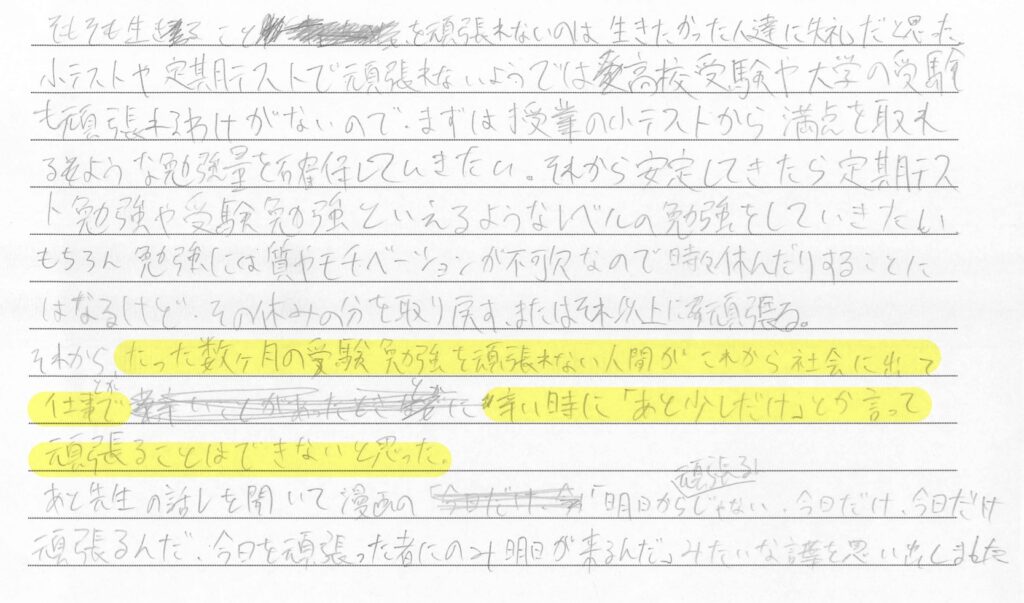 そもそも生きることを頑張れないのは生きたかった人達に失礼だと思った
小テストや定期テストで頑張れないようでは高校受験や大学の受験
も頑張れるわけがないので、まずは授業の小テストから満点を取れ
るような勉強量を確保していきたい。それから安定してきたら定期テス
ト勉強や受験勉強といえるようなレベルの勉強をしていきたい
もちろん勉強には質やモチベーションが不可欠なので時々休んだりすることに
はなるけど、その休みの分を取り戻す、またはそれ以上に頑張る。
それから、たった数ヶ月の受験勉強を頑張れない人間がこれから社会に出て
仕事とかで辛い時に「あと少しだけ」とか言って
頑張ることはできないと思った。
あと先生の話しを聞いて漫画の「明日から頑張るじゃない、今日だけ、今日だけ
頑張るんだ、今日を頑張った者にのみ明日が来るんだ」みたいな言葉を思い出しました